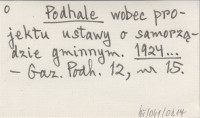 o
Podhale wobec pro-
jektu ustawy o samorzą-
dzie gminnym. 1924...
– Gaz. Podh. 12, nr 15.